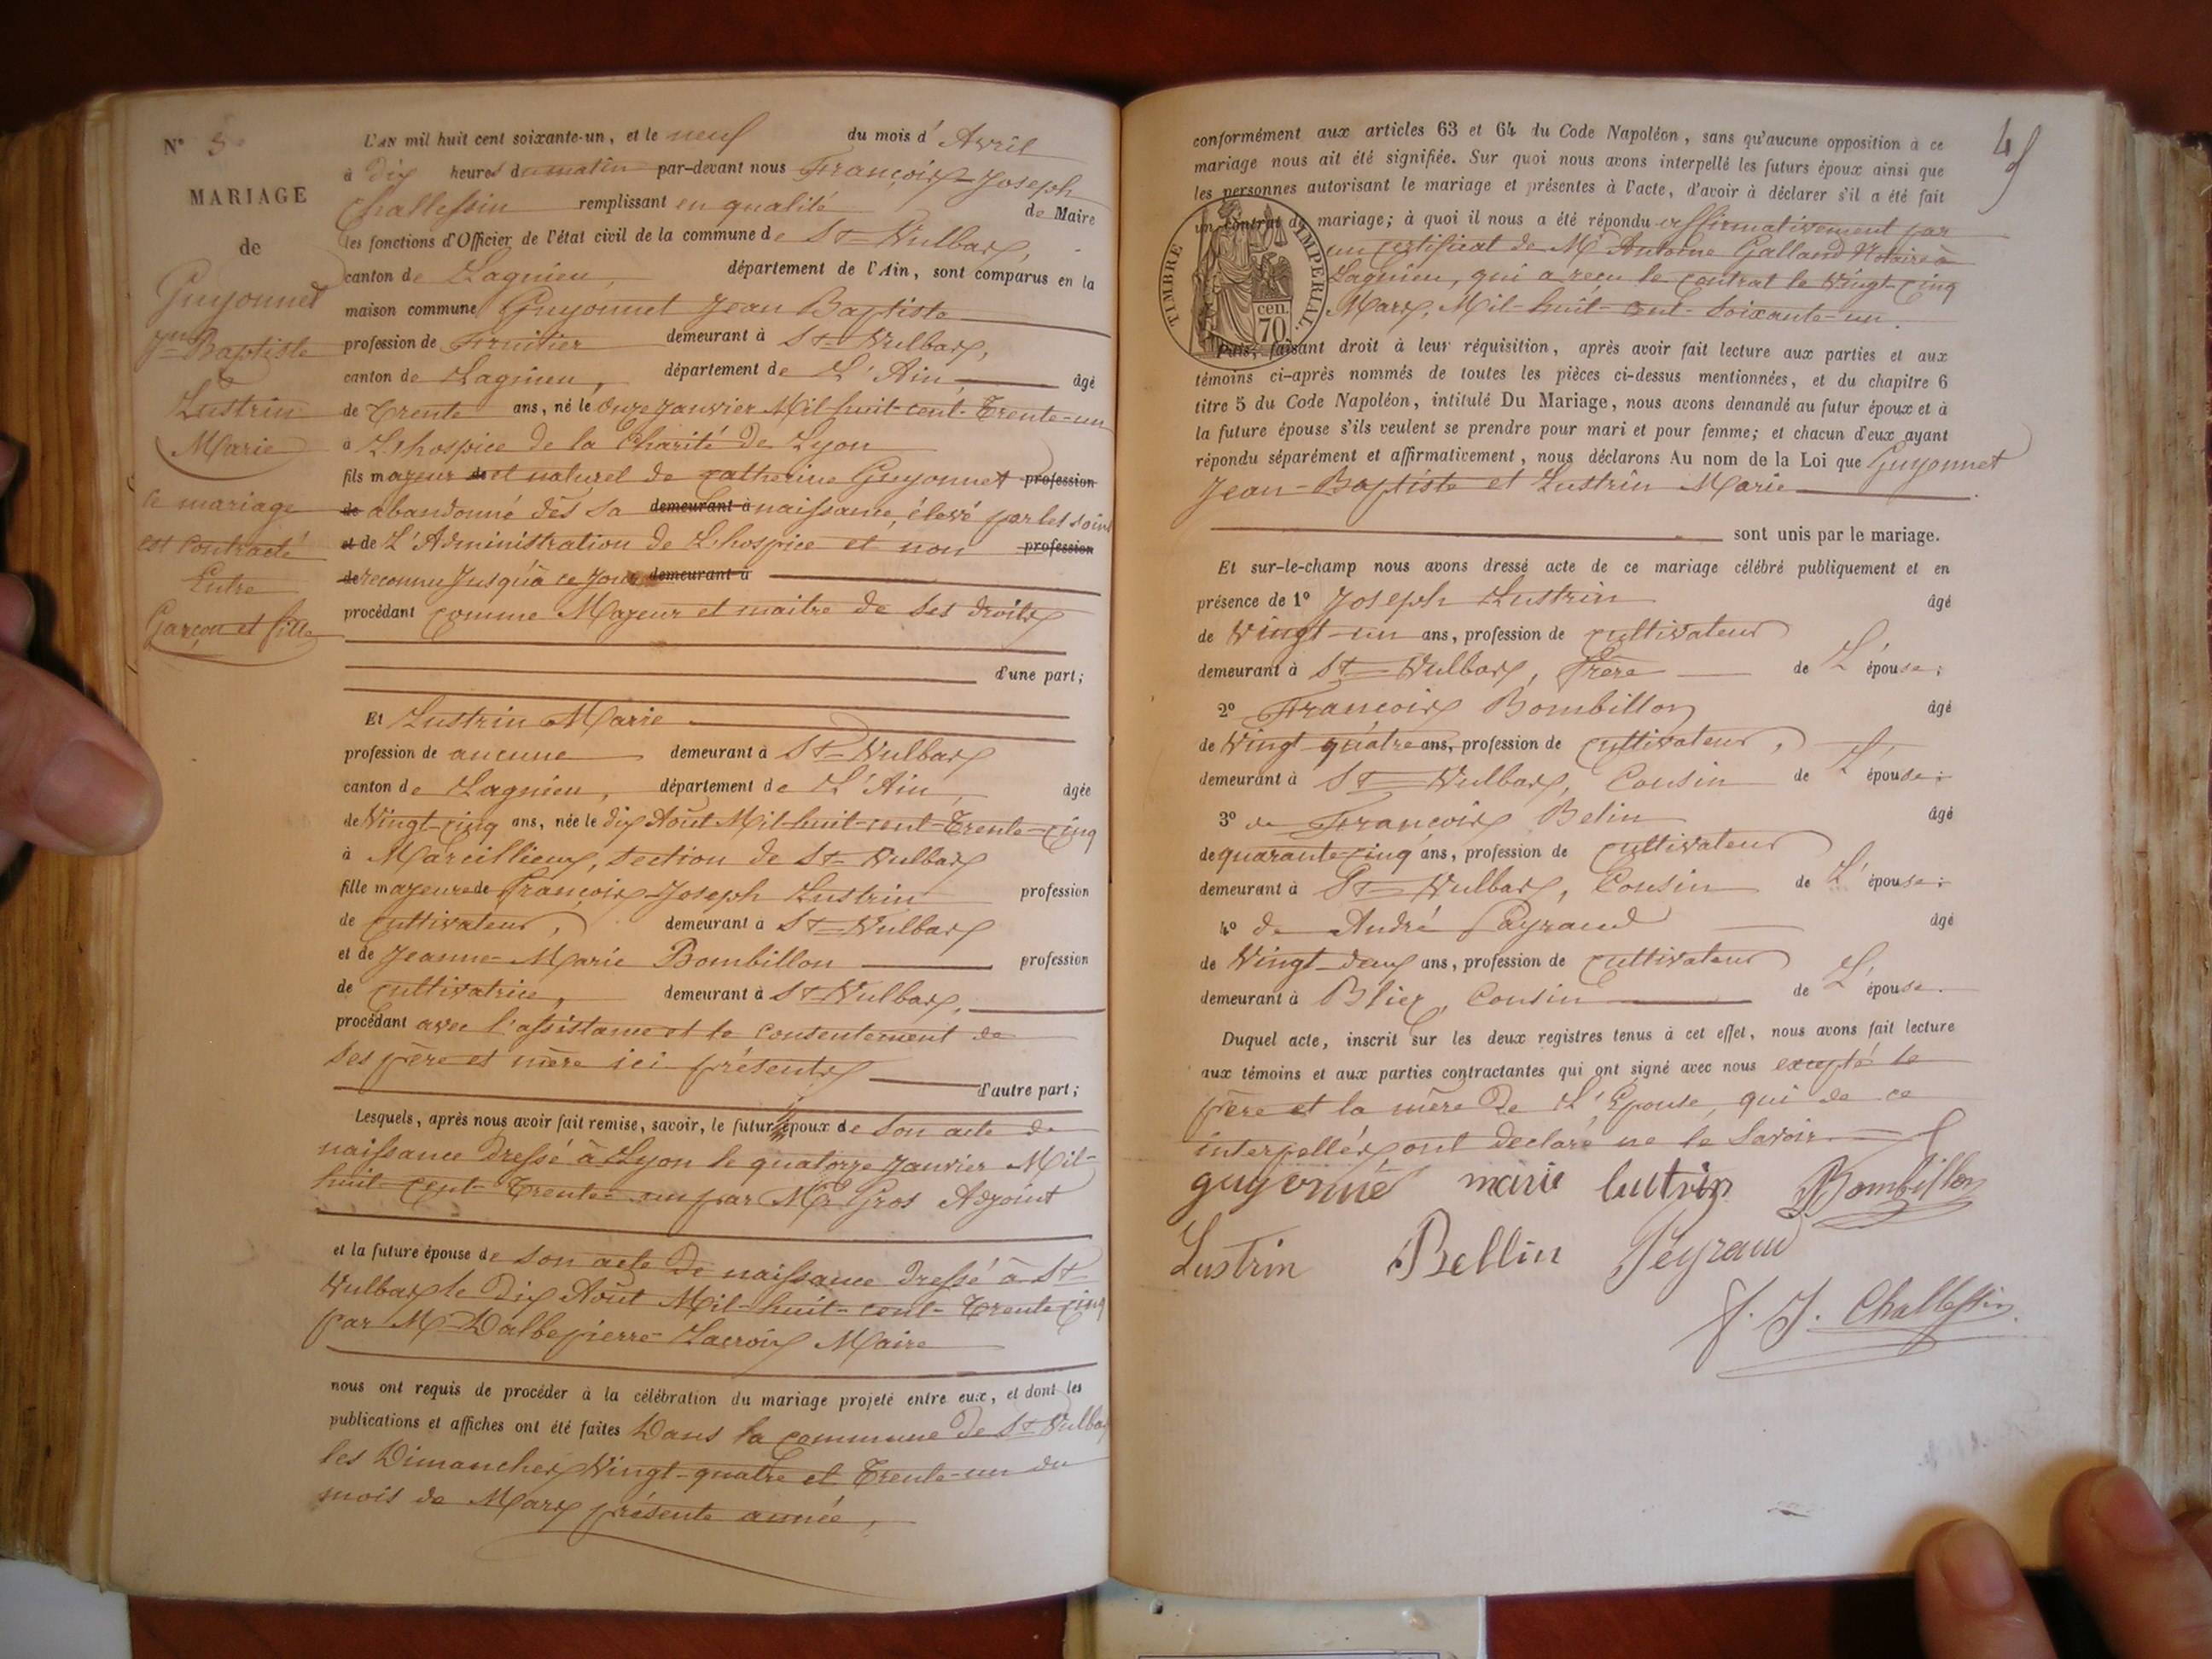 N° 5
MARIAGE
de
Guyonnet
Jn Baptiste
Lustrin
Marie
le mariage
est contracté
Entre
Garçon et fille
L'AN mil huit cent soixante-un, et le neuf du mois d'Avril
à dix heures du matin par-devant nous François-Joseph
Challessin remplissant en qualité de Maire
les fonctions d'Officier de l'état civil de la commune de St-Vulbas,
canton de Lagnieu, département de l'Ain, sont comparus en la
maison commune Guyonnet Jean Baptiste
profession de Fruitier demeurant à St-Vulbas,
canton de Lagnieu, département de L'Ain, âgé
de Trente ans, né le Onze Janvier Mil-huit-cent-Trente-un
à L'hospice de la Charité de Lyon
fils majeur et naturel de Catherine Guyonnet profession
de abandonné dès sa demeurant à naissance, élevé par les soins
et de L'Administration de L'hospice et non profession
de reconnu jusqu'à ce jour demeurant à
procédant comme Majeur et maitre de ses droits
d'une part;
Et Lustrin Marie
profession de aucune demeurant à St-Vulbas
canton de Lagnieu, département de L'Ain, âgée
de Vingt-cinq ans, née le dix Août Mil-huit-cent-Trente-cinq
à Marcillieux, section de St-Vulbas
fille majeure de François-Joseph Lustrin profession
de cultivateur, demeurant à St-Vulbas
et de Jeanne-Marie Bombillon profession
de cultivatrice, demeurant à St-Vulbas,
procédant avec l'assistance et le consentement de
ses père et mère ici présents
d'autre part;
Lesquels, après nous avoir fait remise, savoir, le futur époux de son acte de
naissance dressé à Lyon le quatorze Janvier Mil-
huit-cent-Trente-un par Mr Gros Adjoint
et la future épouse de son acte de naissance dressé à St-
Vulbas le dix Août Mil-huit-cent-Trente-cinq
par M Dalbepierre-Lacroix Maire
nous ont requis de procéder à la célébration du mariage projeté entre eux, et dont les
publications et affiches ont été faites Dans la commune de St-Vulbas
les Dimanches Vingt-quatre et Trente-un du
mois de Mars présente année,
conformément aux articles 63 et 64 du Code Napoléon, sans qu'aucune opposition à ce
mariage nous ait été signifiée. Sur quoi nous avons interpellé les futurs époux ainsi que
les personnes autorisant le mariage et présentes à l'acte, d'avoir à déclarer s'il a été fait
un contrat de mariage; à quoi il nous a été répondu affirmativement par
un certificat de Me Antoine Galland Notaire à
Lagnieu, qui a reçu le contrat le Vingt-cinq
Mars, Mil-huit-cent-soixante-un.
TIMBRE IMPERIAL.
cen.
70
Puis, faisant droit à leur réquisition, après avoir fait lecture aux parties et aux
témoins ci-après nommés de toutes les pièces ci-dessus mentionnées, et du chapitre 6
titre 5 du Code Napoléon, intitulé Du Mariage, nous avons demandé au futur époux et à
la future épouse s'ils veulent se prendre pour mari et pour femme; et chacun d'eux ayant
répondu séparément et affirmativement, nous déclarons Au nom de la Loi que Guyonnet
Jean-Baptiste et Lustrin Marie
sont unis par le mariage.
Et sur-le-champ nous avons dressé acte de ce mariage célébré publiquement et en
présence de 1° Joseph Lustrin âgé
de Vingt-un ans, profession de cultivateur
demeurant à St-Vulbas, Frère de L'épouse;
2° François Bombillon âgé
de Vingt-quatre ans, profession de cultivateur,
demeurant à St-Vulbas, Cousin de L'épouse;
3° de François Belin âgé
de quarante-cinq ans, profession de cultivateur
demeurant à St-Vulbas, Cousin de L'épouse;
4° de André Payraud âgé
de Vingt-deux ans, profession de cultivateur
demeurant à Blies, Cousin de L'épouse.
Duquel acte, inscrit sur les deux registres tenus à cet effet, nous avons fait lecture
aux témoins et aux parties contractantes qui ont signé avec nous excepté le
père et la mère de L'Epouse, qui de ce
interpellés ont declaré ne le savoir.
guyonné marie lutrin Bombillon
Lustrin Bellin Peyraud
f. J. Challessin.